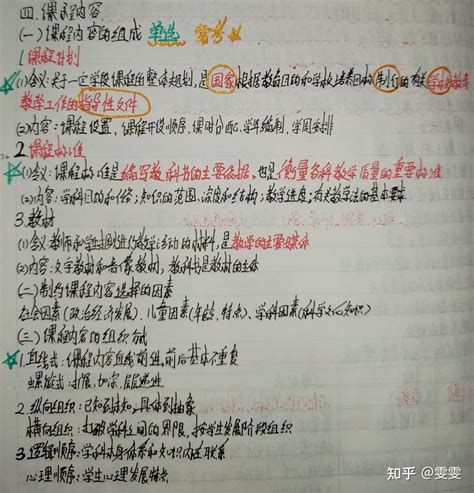 四.课程内容
(一)课程内容的组成 单选 常考
1.课程计划
(1)含义:关于一定学段课程的整体规划,是国家根据教育目的和学校培养目标制订的有关学校教育
教学工作的指导性文件
(2)内容:课程设置、课程开设顺序、课时分配、学年编制、学周安排
2.课程标准
(1)含义:课程标准是编写教科书的主要依据,也是衡量各科教学质量的重要标准
(2)内容:学科目的和任务;知识的范围、深度和结构;教学进度;有关教学法的基本要求
3.教材
(1)含义:教师和学生据以进行教学活动的材料,是教学的主要媒体
(2)内容:文字教材和音像教材,教科书是教材的主体
(二)制约课程内容选择的因素
社会因素(政治经济发展)、儿童因素(年龄、特点)、学科因素(科学文化知识)
(三)课程内容的组织方式
1.直线式:课程内容直线前进,前后基本不重复
螺旋式:扩展、加深、层层递进
2.纵向组织:已知到未知、具体到抽象
横向组织:打破学科之间的界限,按学生发展阶段组织
3.逻辑顺序:学科本身体系和知识内在联系
心理顺序:学生心理发展特点
知乎 @雯雯